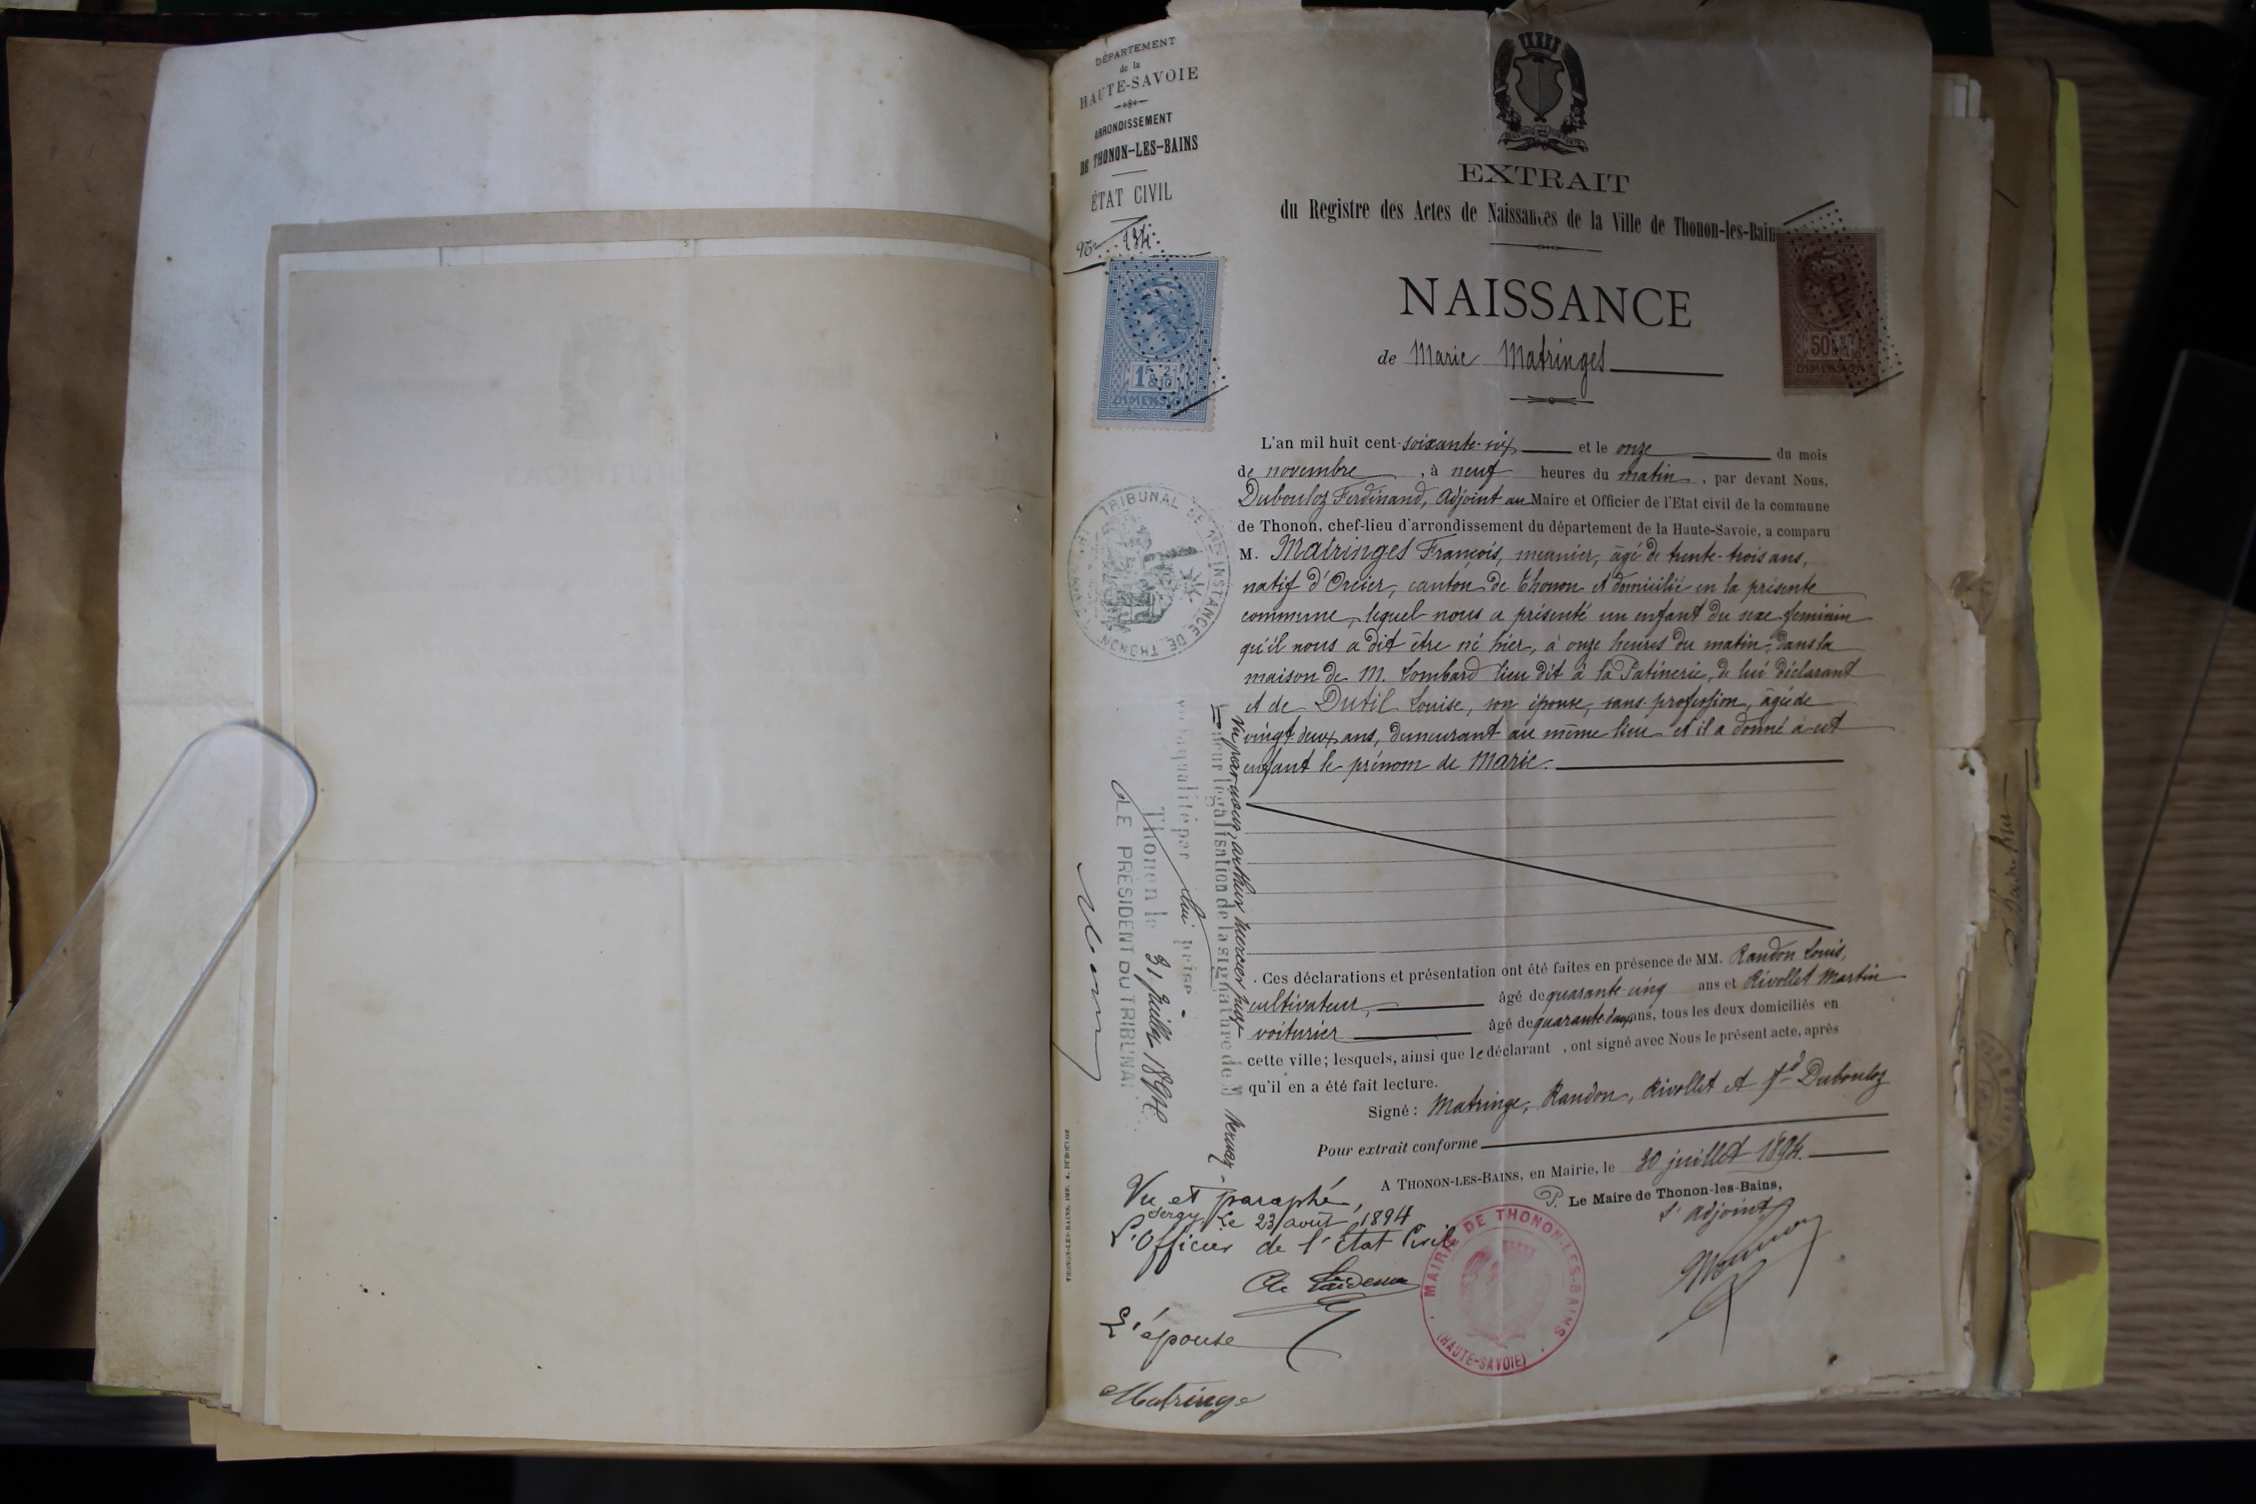 DÉPARTEMENT
de la
HAUTE-SAVOIE
ARRONDISSEMENT
DE THONON-LES-BAINS
ÉTAT CIVIL
No 134
EXTRAIT
du Registre des Actes de Naissances de la Ville de Thonon-les-Bains
NAISSANCE
de Marie Matringes
L'an mil huit cent-soixante-six et le onze du mois
de novembre, à neuf heures du matin, par devant Nous,
Dubouloz Ferdinand, Adjoint au Maire et Officier de l'Etat civil de la commune
de Thonon, chef-lieu d'arrondissement du département de la Haute-Savoie, a comparu
M. Matringes François, meunier, âgé de trente-trois ans,
natif d'Orcier, canton de Thonon et domicilié en la présente
commune, lequel nous a présenté un enfant du sexe feminin
qu'il nous a dit être né hier, à onze heures du matin, dans la
maison de M. Lombard lieu dit à la Patinerie, de lui déclarant
et de Dutil Louise, son épouse, sans profession, âgée de
vingt deux ans, demeurant au même lieu et il a donné à cet
enfant le prénom de Marie.
Ces déclarations et présentation ont été faites en présence de MM. Randon Louis,
cultivateur, âgé de quarante-cinq ans et Rivollet Martin
voiturier âgé de quarante deux ans, tous les deux domiciliés en
cette ville; lesquels, ainsi que le déclarant, ont signé avec Nous le présent acte, après
qu'il en a été fait lecture.
Signé: Matringe, Randon, Rivollet et Fd Dubouloz
Pour extrait conforme
A THONON-LES-BAINS, en Mairie, le 30 juillet 1894.
P. Le Maire de Thonon-les-Bains,
L'adjoint
MAIRIE DE THONON-LES-BAINS
(HAUTE-SAVOIE)
Vu et paraphé,
Sergy, Le 23 août 1894
L'Officier de l'État Civil
L'épouse
Matringe
1F &
DIMENSION
50c
DIMENSION
TRIBUNAL DE 1RE INSTANCE DE THONON
Vu par nous, arthur mercier juge
pour légalisation de la signature de M
qualité par lui prise
Thonon le 31 juillet 1894
LE PRÉSIDENT DU TRIBUNAL